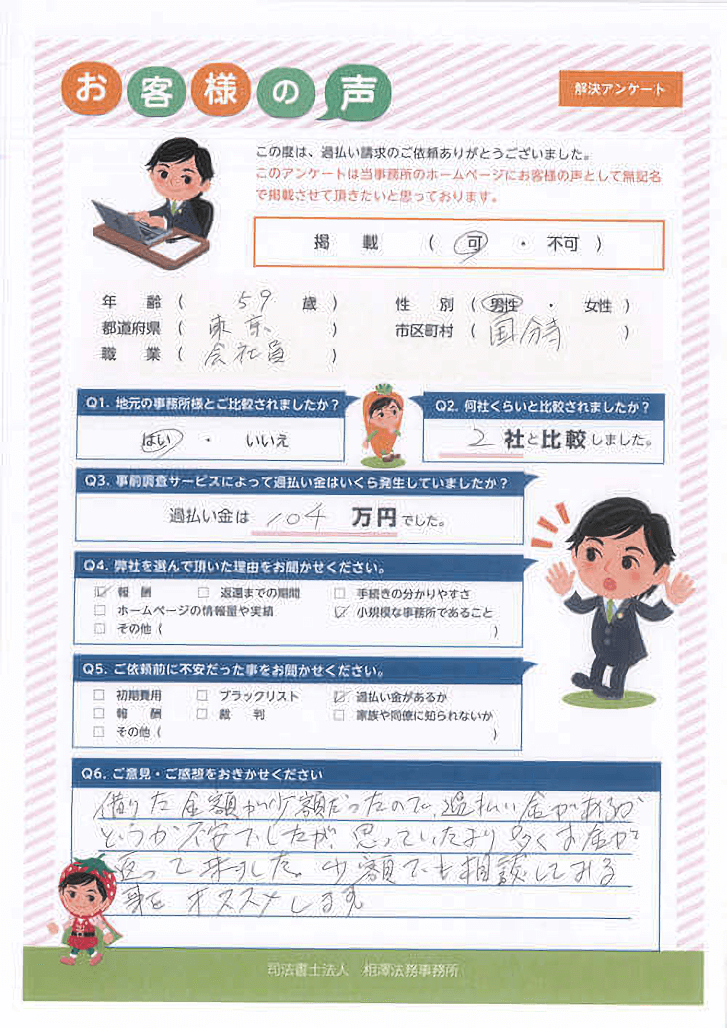 お客様の声
解決アンケート
この度は、過払い請求のご依頼ありがとうございました。
このアンケートは当事務所のホームページにお客様の声として無記名
で掲載させて頂きたいと思っております。
掲 載 ( 可 ・ 不可 )
年 齢 ( 59 歳 ) 性 別 ( 男性 ・ 女性 )
都道府県 ( 東京 ) 市区町村 ( 国分寺 )
職 業 ( 会社員 )
Q1. 地元の事務所様とご比較されましたか?
はい ・ いいえ
Q2. 何社くらいと比較されましたか?
2 社と比較しました。
Q3. 事前調査サービスによって過払い金はいくら発生していましたか?
過払い金は 104 万円でした。
Q4. 弊社を選んで頂いた理由をお聞かせください。
☑ 報 酬 □ 返還までの期間 □ 手続きの分かりやすさ
□ ホームページの情報量や実績 ☑ 小規模な事務所であること
□ その他 ( )
Q5. ご依頼前に不安だった事をお聞かせください。
□ 初期費用 □ ブラックリスト ☑ 過払い金があるか
□ 報 酬 □ 裁 判 □ 家族や同僚に知られないか
□ その他 ( )
Q6. ご意見・ご感想をおきかせください
借りた金額が少額だったので、過払い金があるか
どうか不安でしたが、思っていたより多くお金が
返って来ました。少額でも相談してみる
事を オススメします
司法書士法人 相澤法務事務所